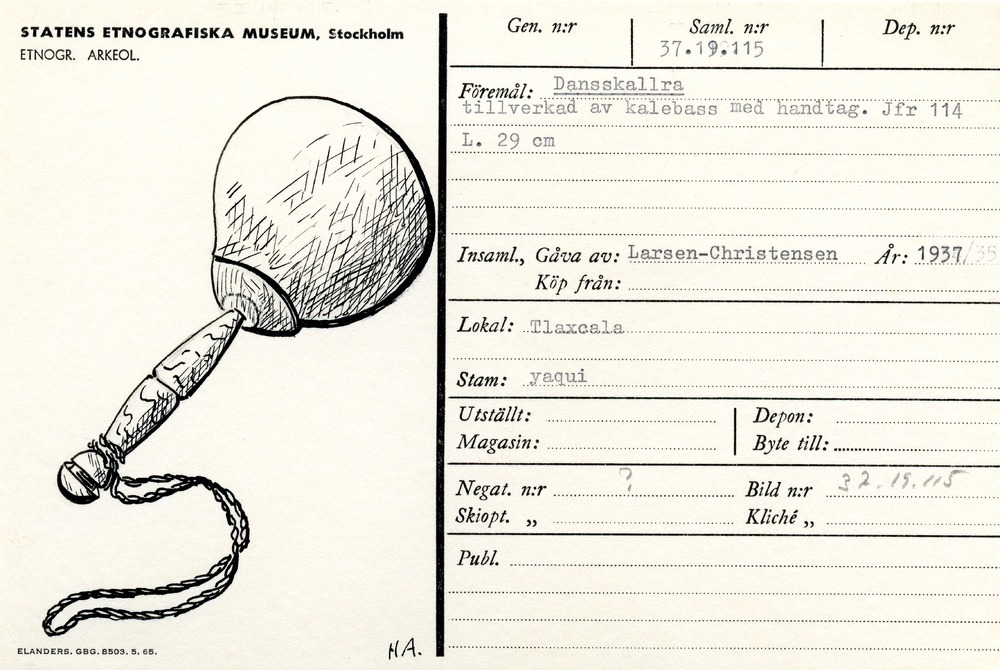 STATENS ETNOGRAFISKA MUSEUM, Stockholm
ETNOGR. ARKEOL.
Gen. n:r
Saml. n:r
37.19.115
Dep. n:r
Föremål: Dansskallra
tillverkad av kalebass med handtag. Jfr 114
L. 29 cm
Insaml., Gåva av: Larsen-Christensen År: 1937/35
Köp från:
Lokal: Tlaxcala
Stam: yaqui
Utställt: Depon:
Magasin: Byte till:
Negat. n:r ? Bild n:r 37.19.115
Skiopt. „ Kliché „
Publ.
ELANDERS. GBG. 8503. 5. 65.
HA.